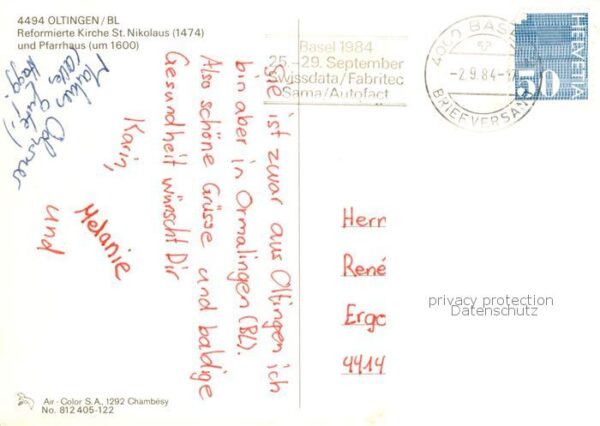 4494 OLTINGEN/BL
Reformierte Kirche St. Nikolaus (1474)
und Pfarrhaus (um 1600)
Basel 1984
25.-29. September
Swissdata/Fabritec
Sama/Autofact
4000 BASEL
-2.9.84-17
BRIEFVERSAND
HELVETIA
50
ist zwar aus Oltingen ich
bin aber in Ormalingen (BL).
Also schöne Grüsse und baldige
Gesundheit wünscht Dir
Karin,
Melanie
und
Herr
René
Erge
4414
privacy protection
Datenschutz
Air-Color S.A., 1292 Chambésy
No. 812 405-122